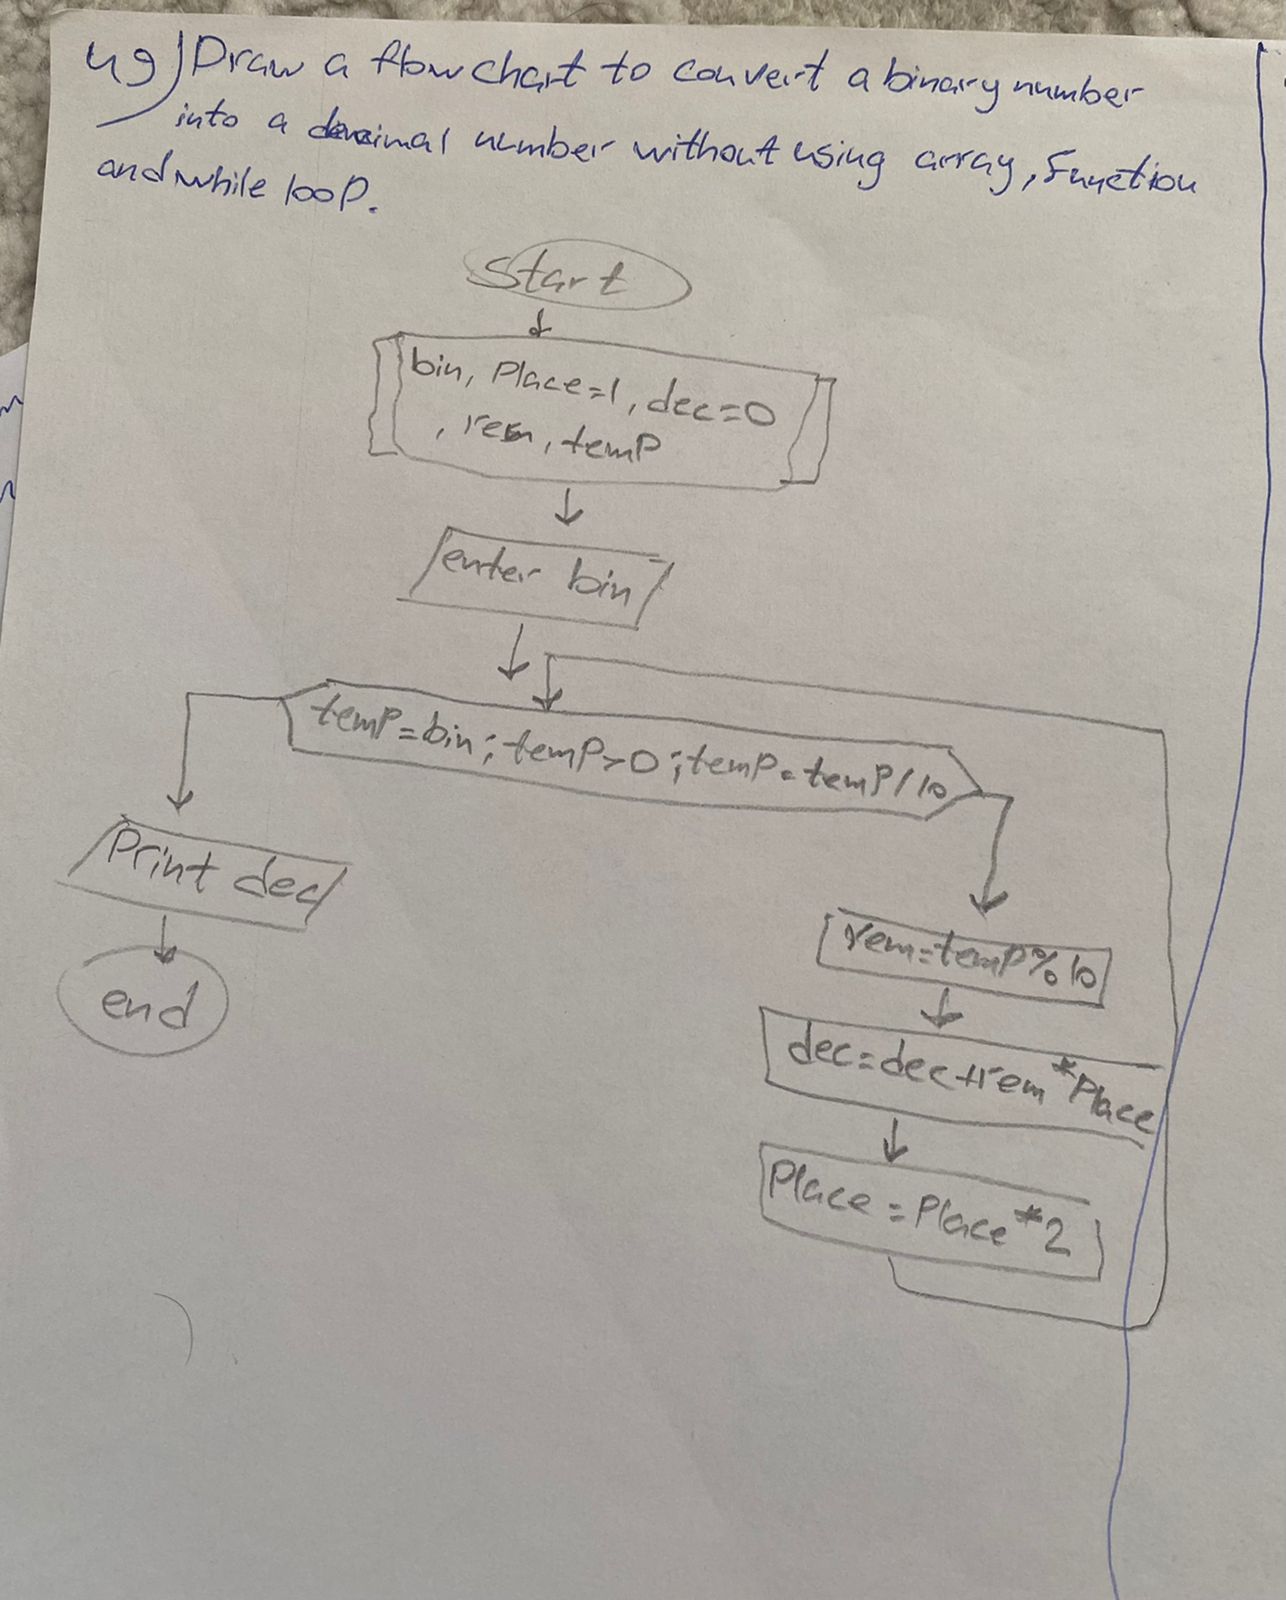 49) Draw a flowchart to convert a binary number
into a decimal number without using array, Function
and while loop.
Start
bin, Place=1, dec=0
, rem, temp
enter bin
temp=bin; temp>0; temp=temp/10
Print dec
end
rem=temp%10
dec=dec+rem*Place
Place=Place*2